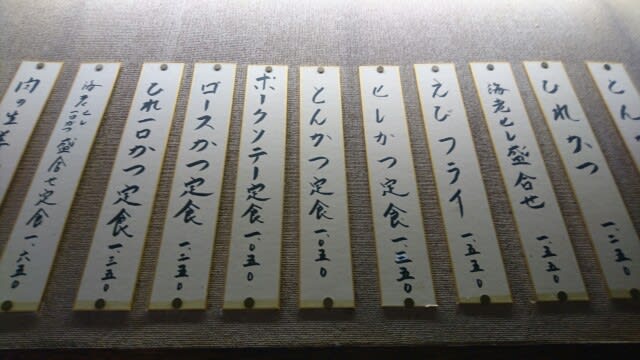 とん
ひれかつ 一、二五〇
海老ヒレ盛合せ 一、五五〇
えびフライ 一、五五〇
ヒレかつ定食 一、三五〇
とんかつ定食 一、〇五〇
ポークソテー定食 一、〇五〇
ロースかつ定食 一、二五〇
ひれ一口かつ定食 一、三五〇
海老ヒレ一口かつ盛合せ定食 一、六五〇
肉の生